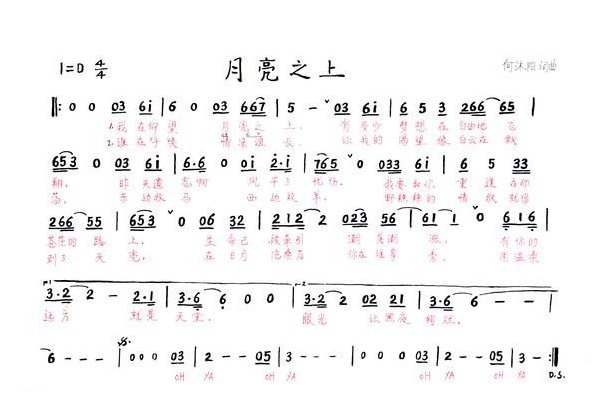 1=D 4/4 月亮之上 何沐阳词曲
‖: 0 0 03 6i | 6 0 03 667 | 5 - 03 6i | 6 5 3 266 | 65 |
1.我在仰望 月亮之上, 有多少梦想在自由地飞
2.谁在呼唤 情深谁长, 让我的渴望像白云在飘
653 0 03 6i | 6·6 0 0i 2·i | 765 0 033 | 6 5 33
翔, 昨天遗忘啊 风干了忧伤, 我要和你重逢在那
荡, 东边牧马 西边放羊, 野辣辣的情歌就唱
266 55 | 653 0 06 32 | 212 2 023 56 | 61 i 0 616 |
苍茫的路上, 生命已被牵引 潮落潮涨, 有你的
到了天亮, 在日月沧桑后 你在谁身旁, 用温柔
1. 3·2 2 - 2·1 | 3·6 6 0 0 | 2. 3·2 2 02 21 | 3·6 6 - - |
远方 就是天堂, 眼光 让黑夜绚烂,
6 - - - | 0 0 0 03 | 2 - - 05 | 3 - - - | 0 0 0 03 | 2 - - 05 | 3 - - :‖
OH YA OH YA OH YA OH YA D.S.